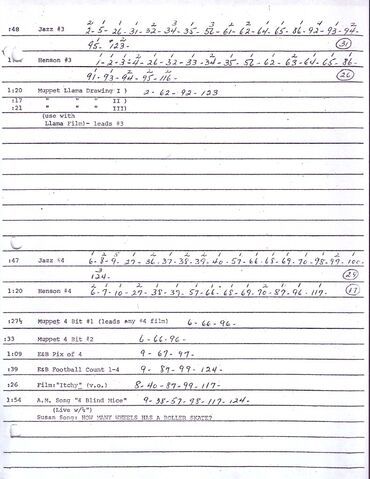 :48 Jazz #3 2-5-26-31-32-34-35-56-61-62-64-65-86-92-93-94-
95-123- 31
Henson #3 1-2-3-4-26-32-33-34-35-56-62-63-64-65-86-
91-93-94-95-116- 26
1:20 Muppet Llama Drawing I ) 2-62-92-123
:17 " " " II )
:21 " " " III)
(use with
Llama Film)- leads #3
:47 Jazz #4 6-8-9-27-36-37-38-39-40-57-66-68-69-70-98-99-100-
124-
1:20 Henson #4 6-7-10-27-38-39-57-66-68-69-70-87-96-117-
:27½ Muppet 4 Bit #1 (leads any #4 film) 6-66-96-
:33 Muppet 4 Bit #2 6-66-96-
1:09 E&B Pix of 4 9-67-97-
:39 E&B Football Count 1-4 9-87-99-124-
:26 Film:"Itchy" (v.o.) 8-40-87-99-117-
1:54 A.M. Song "4 Blind Mice" 9-38-57-98-117-124-
(Live w/4")
Susan Song: HOW MANY WHEELS HAS A ROLLER SKATE?